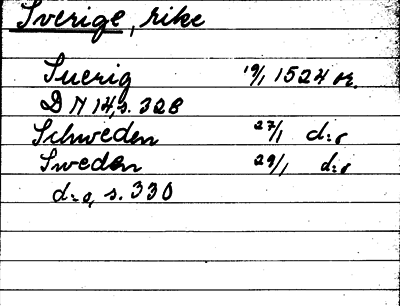 Sverige, rike
Suerig 19/1 1524 or.
D N 14, s. 328
Schweden 27/1 d:o
Sweden 29/1 d:o
d:o, s. 330